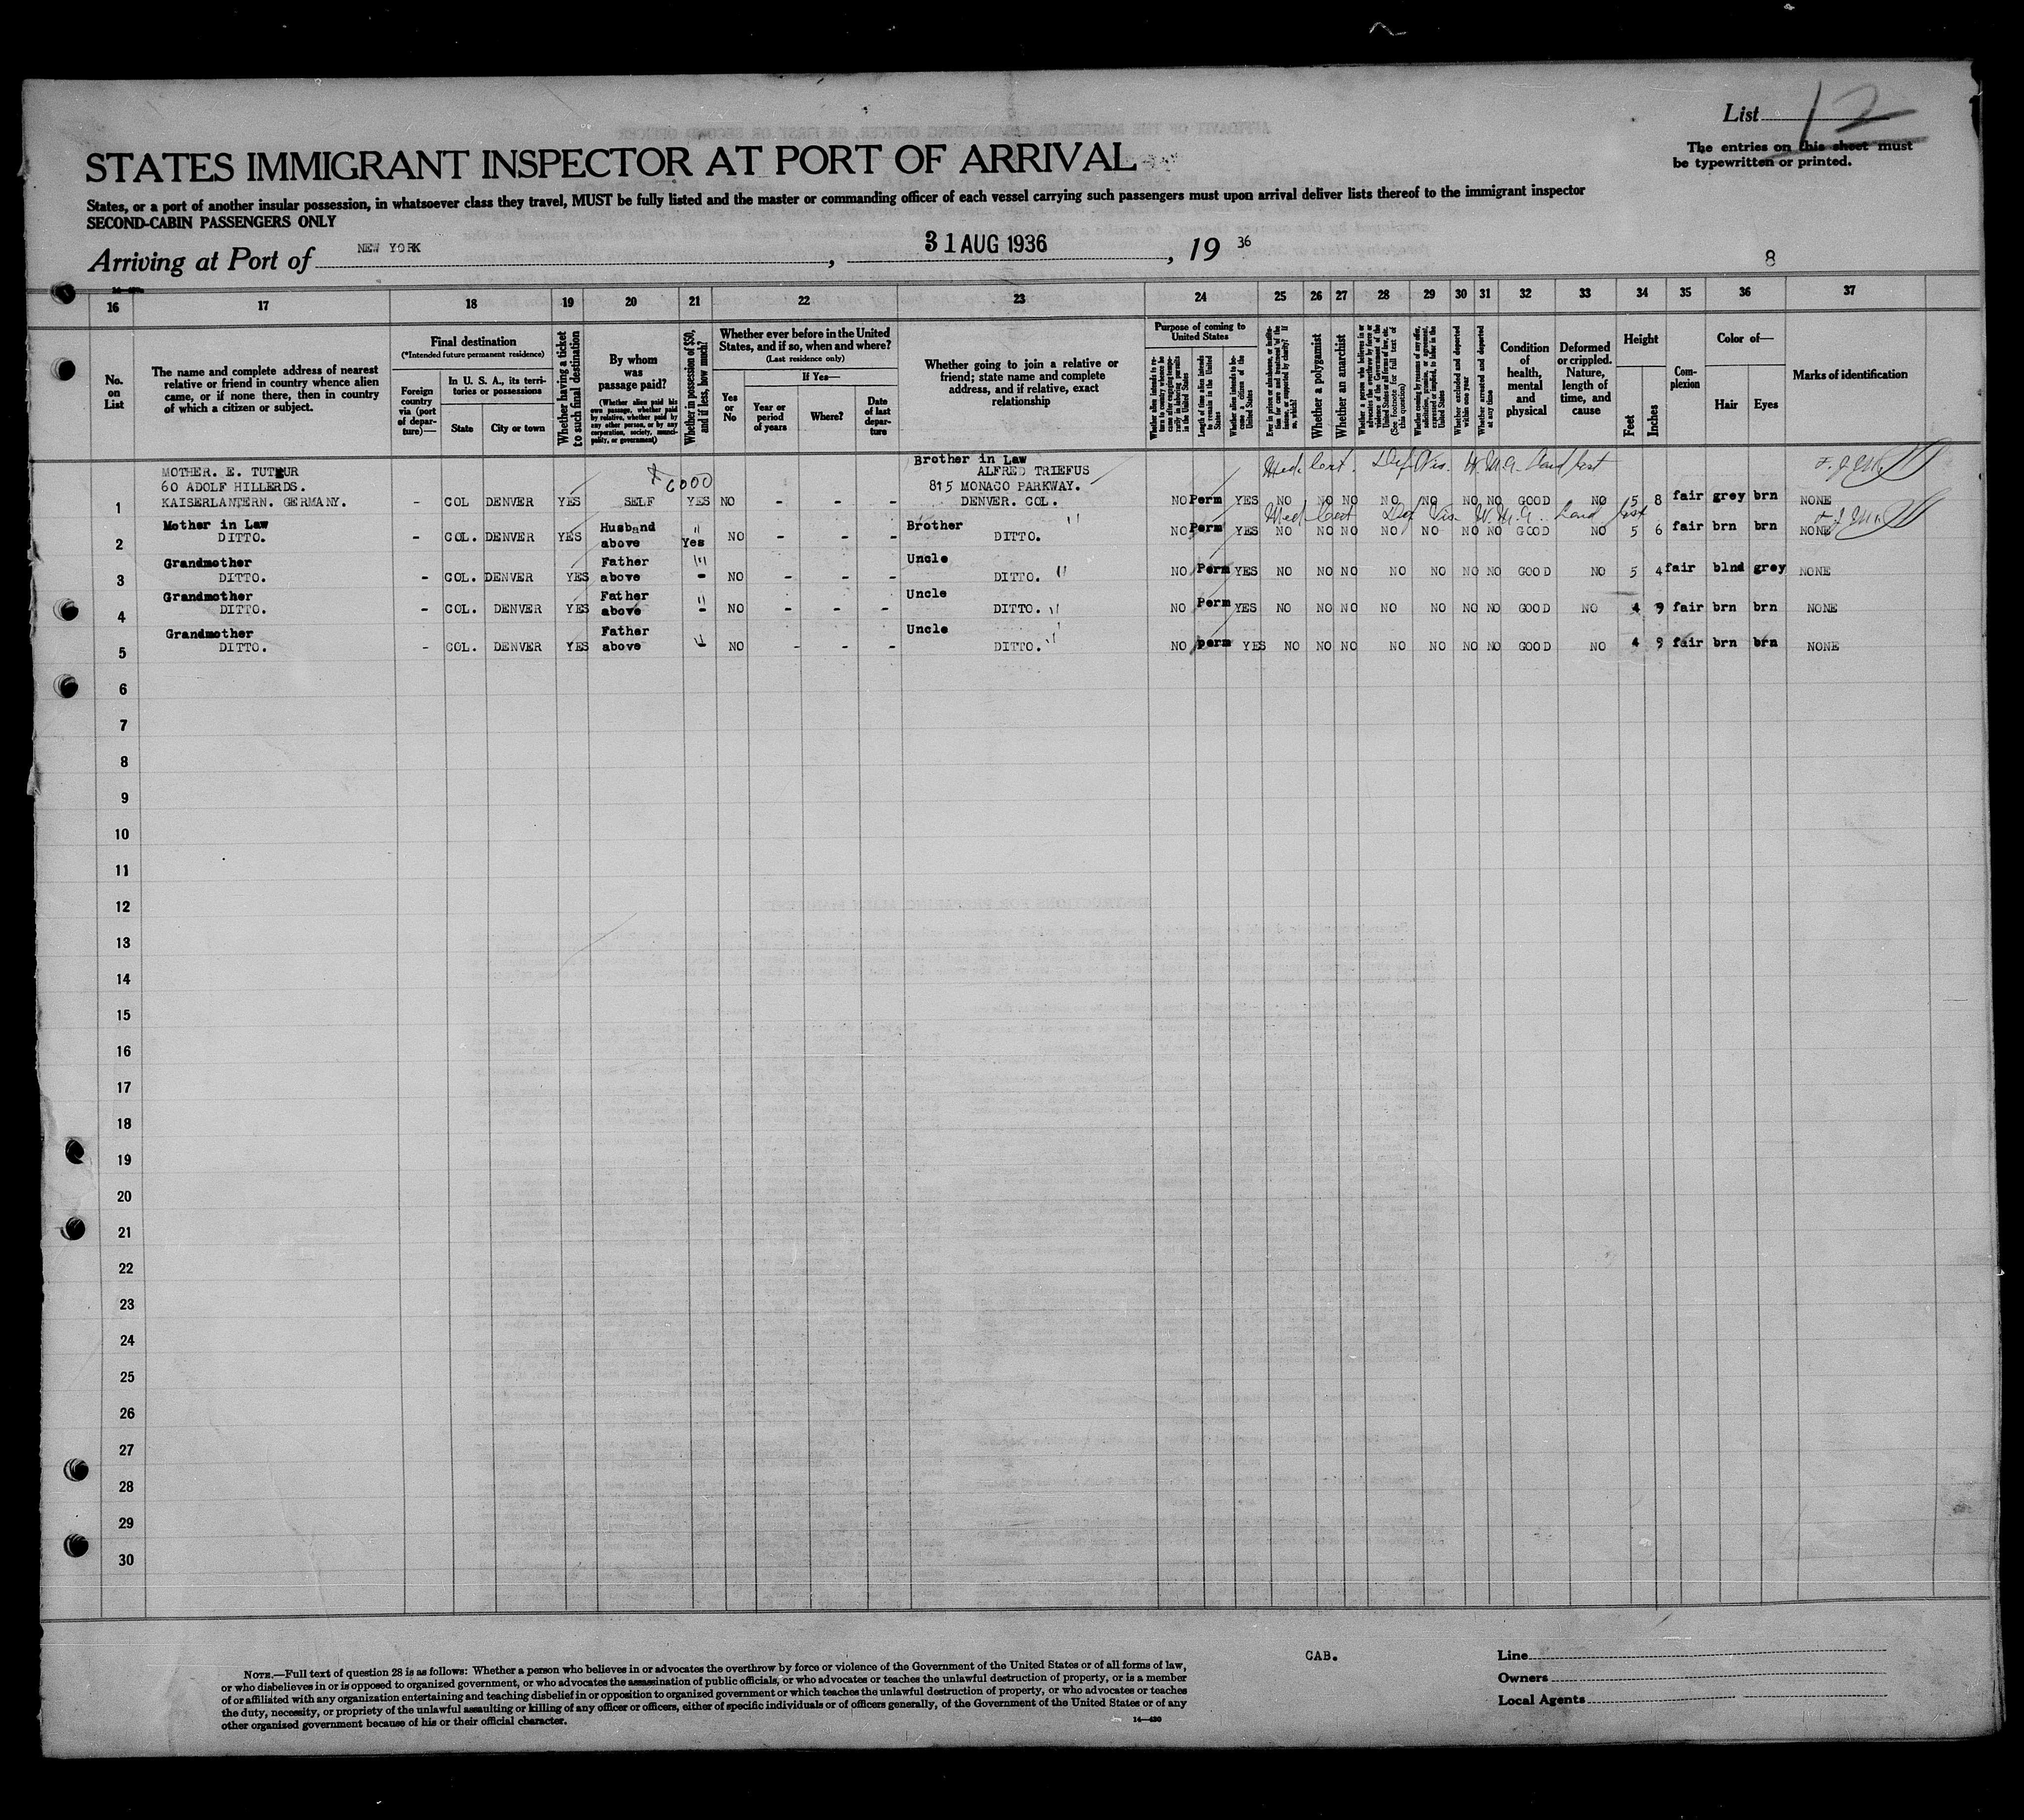 List 12
The entries on this sheet must
be typewritten or printed.
STATES IMMIGRANT INSPECTOR AT PORT OF ARRIVAL
States, or a port of another insular possession, in whatsoever class they travel, MUST be fully listed and the master or commanding officer of each vessel carrying such passengers must upon arrival deliver lists thereof to the immigrant inspector
SECOND-CABIN PASSENGERS ONLY
Arriving at Port of NEW YORK, 31 AUG 1936, 19 36
8
16 17 18 19 20 21 22 23 24 25 26 27 28 29 30 31 32 33 34 35 36 37
No. on List
The name and complete address of nearest
relative or friend in country whence alien
came, or if none there, then in country
of which a citizen or subject.
Final destination
(*Intended future permanent residence)
Foreign country via (port of departure)—
In U. S. A., its territories or possessions
State
City or town
Whether having a ticket to such final destination
By whom was passage paid?
(Whether alien paid his own passage, whether paid by relative, whether paid by any other person, or by any corporation, society, municipality, or government)
Whether in possession of $50, and if less, how much?
Whether ever before in the United States, and if so, when and where?
(Last residence only)
Yes or No
If Yes—
Year or period of years
Where?
Date of last departure
Whether going to join a relative or
friend; state name and complete
address, and if relative, exact
relationship
Purpose of coming to United States
Whether alien intends to return to country whence he came after engaging temporarily in laboring pursuits in the United States
Length of time alien intends to remain in the United States
Whether alien intends to become a citizen of the United States
Ever in prison or almshouse, or institution for care and treatment of the insane, or supported by charity? If so, which?
Whether a polygamist
Whether an anarchist
(See footnote for full text of this question)
Whether excluded and deported within one year
Whether arrested and deported at any time
Condition of health, mental and physical
Deformed or crippled. Nature, length of time, and cause
Height
Feet
Inches
Complexion
Color of—
Hair
Eyes
Marks of identification
Med. Cert. Def. Vis.
MOTHER. E. TUTEUR
60 ADOLF HILLERDS.
KAISERLANTERN. GERMANY.
Brother in Law
ALFRED TRIEFUS
815 MONACO PARKWAY.
DENVER. COL.
1 - COL DENVER YES SELF 6000 YES NO - - - NO Perm YES NO NO NO NO NO NO NO GOOD NO 5 8 fair grey brn NONE
Med Cert Def Vis.
2 Mother in Law DITTO. - COL. DENVER YES Husband above " Yes NO - - - Brother DITTO. " NO Perm YES NO NO NO NO NO NO NO GOOD NO 5 6 fair brn brn NONE
3 Grandmother DITTO. - COL. DENVER YES Father above " - NO - - - Uncle DITTO. " NO Perm YES NO NO NO NO NO NO NO GOOD NO 5 4 fair blnd grey NONE
4 Grandmother DITTO. - COL. DENVER YES Father above " - NO - - - Uncle DITTO. " NO Perm YES NO NO NO NO NO NO NO GOOD NO 4 9 fair brn brn NONE
5 Grandmother DITTO. - COL. DENVER YES Father above - NO - - - Uncle DITTO. " NO perm YES NO NO NO NO NO NO NO GOOD NO 4 9 fair brn brn NONE
6
7
8
9
10
11
12
13
14
15
16
17
18
19
20
21
22
23
24
25
26
27
28
29
30
NOTE.—Full text of question 28 is as follows: Whether a person who believes in or advocates the overthrow by force or violence of the Government of the United States or of all forms of law,
or who disbelieves in or is opposed to organized government, or who advocates the assassination of public officials, or who advocates or teaches the unlawful destruction of property, or is a member
of or affiliated with any organization entertaining and teaching disbelief in or opposition to organized government or which teaches the unlawful destruction of property, or who advocates or teaches
the duty, necessity, or propriety of the unlawful assaulting or killing of any officer or officers, either of specific individuals or of officers generally, of the Government of the United States or of any
other organized government because of his or their official character.
14—430
CAB.
Line
Owners
Local Agents